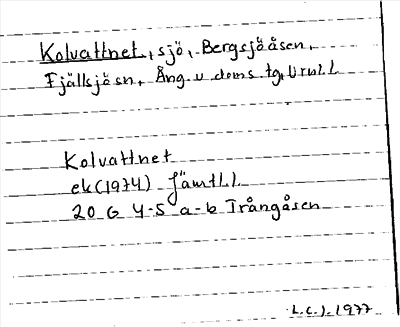 Kolvattnet, sjö, Bergsjöåsen,
Fjällsjö sn, Ång. v. doms. tg,
Kolvattnet
ek (1974) Jämtl. l.
20 G 4-5 a-b Trångåsen
L.C.J. 1977